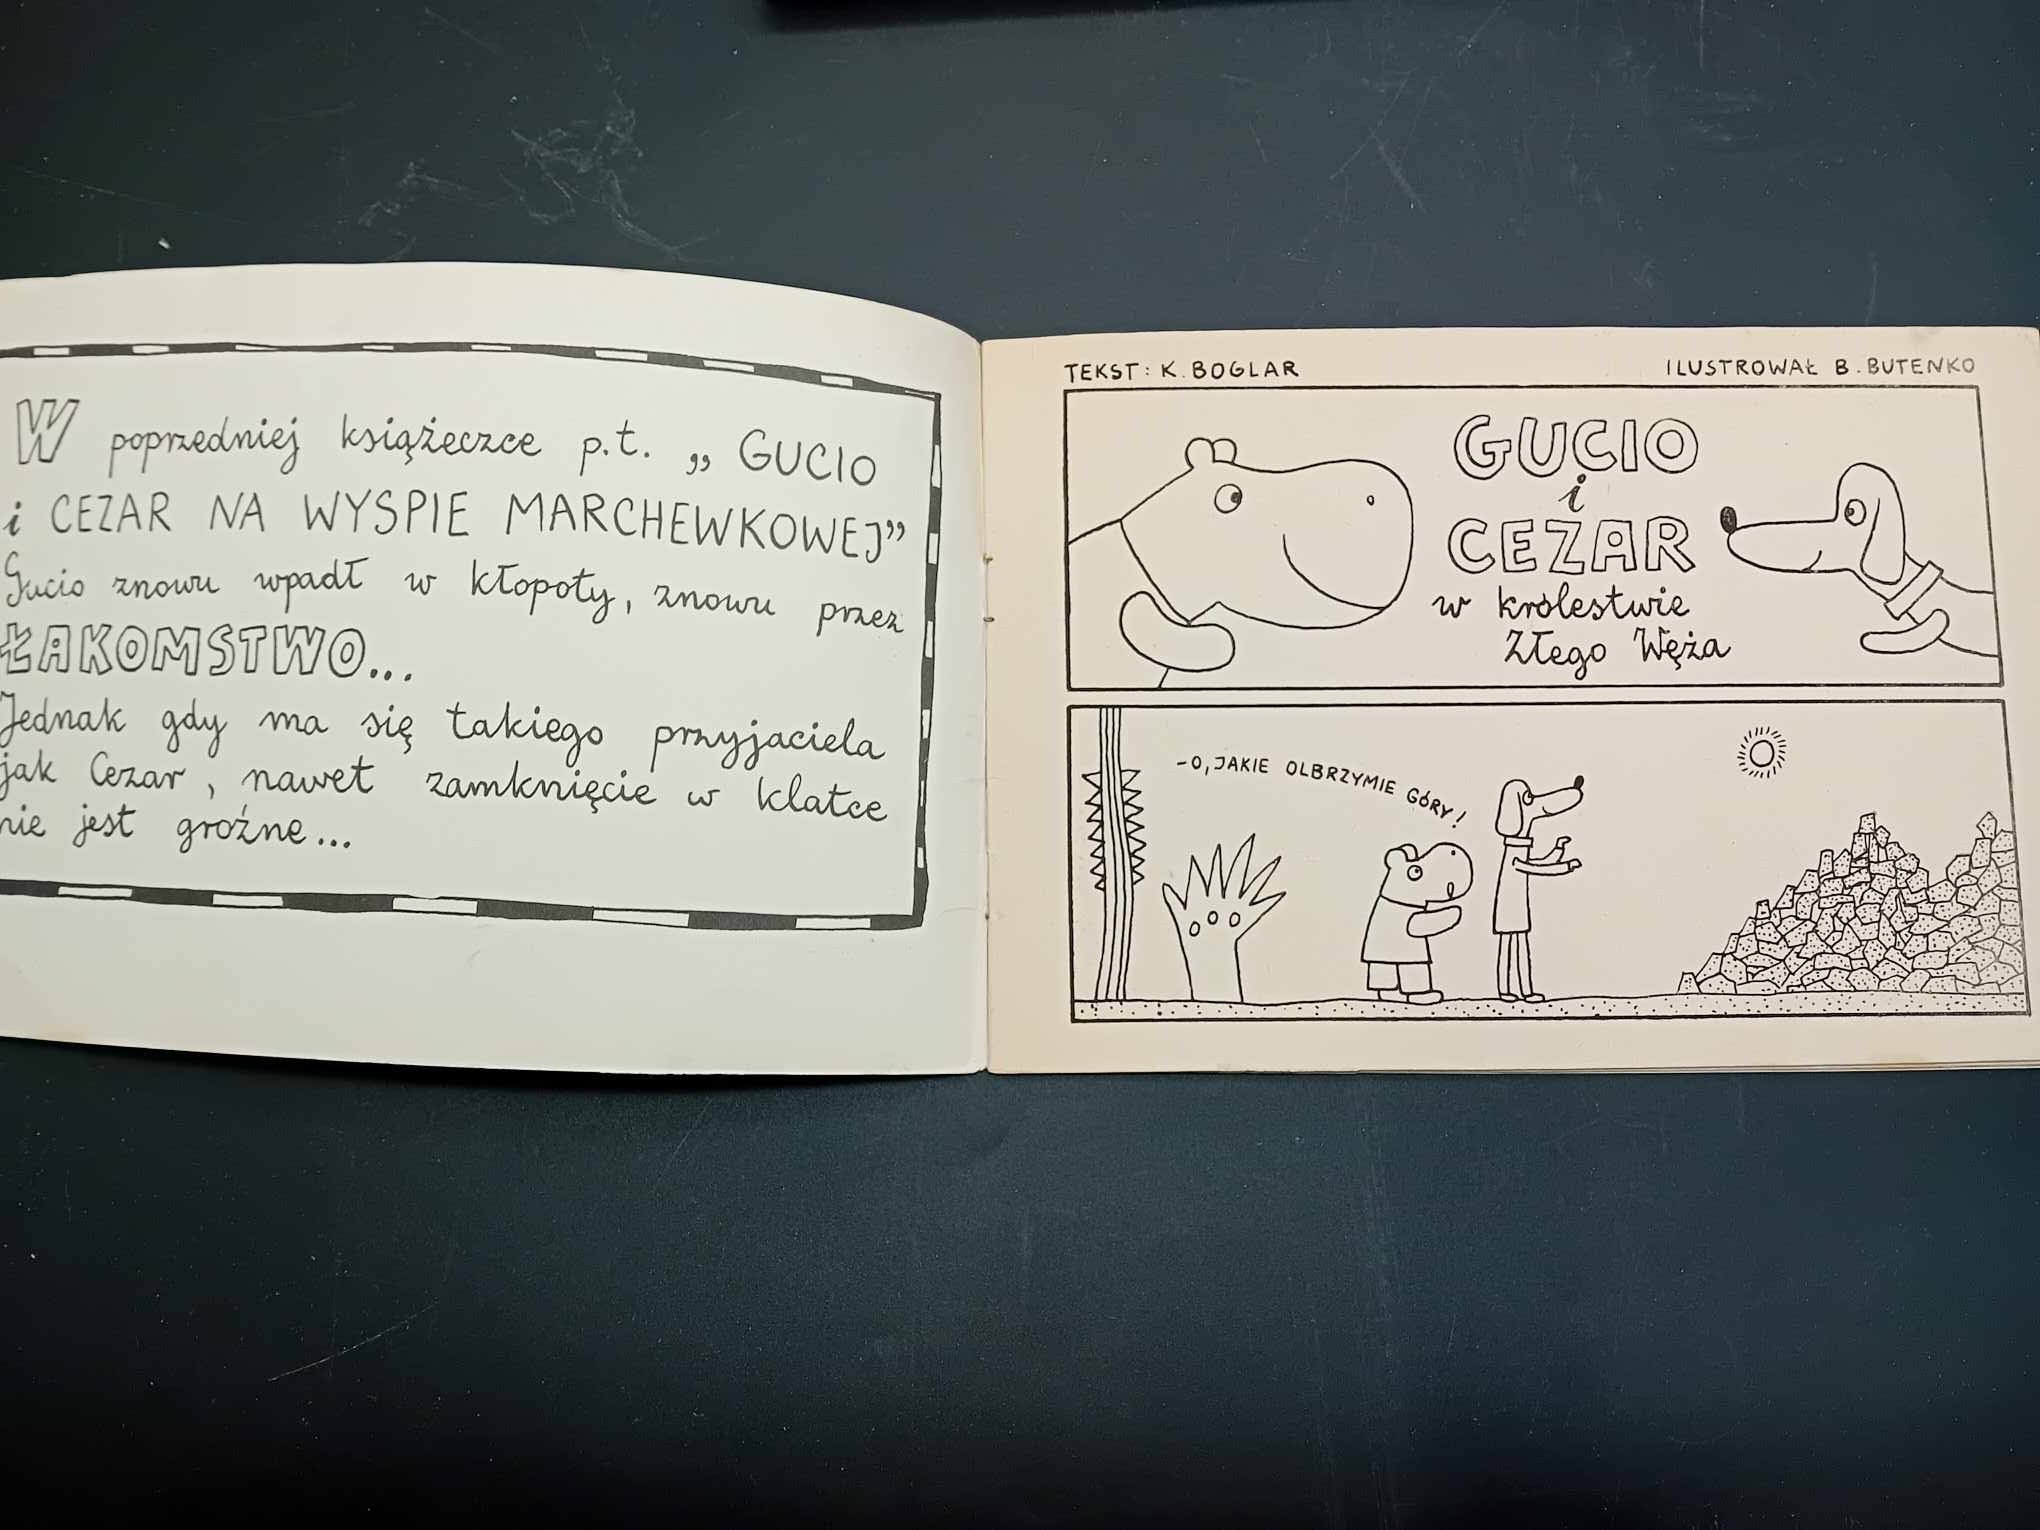 W poprzedniej książeczce p.t. „ GUCIO
i CEZAR NA WYSPIE MARCHEWKOWEJ”
Gucio znowu wpadł w kłopoty, znowu przez
ŁAKOMSTWO...
Jednak gdy ma się takiego przyjaciela
jak Cezar, nawet zamknięcie w klatce
nie jest groźne...
TEKST: K. BOGLAR
ILUSTROWAŁ B. BUTENKO
GUCIO
i
CEZAR
w królestwie
Złego Węża
-O, JAKIE OLBRZYMIE GÓRY!